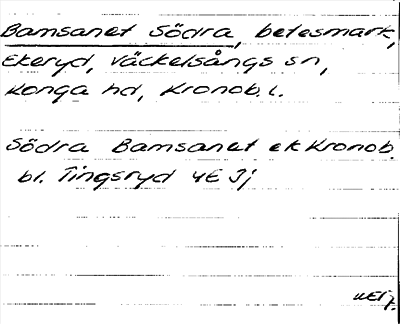 Bamsanet Södra, betesmark,
Ekeryd, Väckelsångs sn,
Konga hd, Kronob. l.
Södra Bamsanet ek Kronob.
bl. Tingsryd 4E 3j